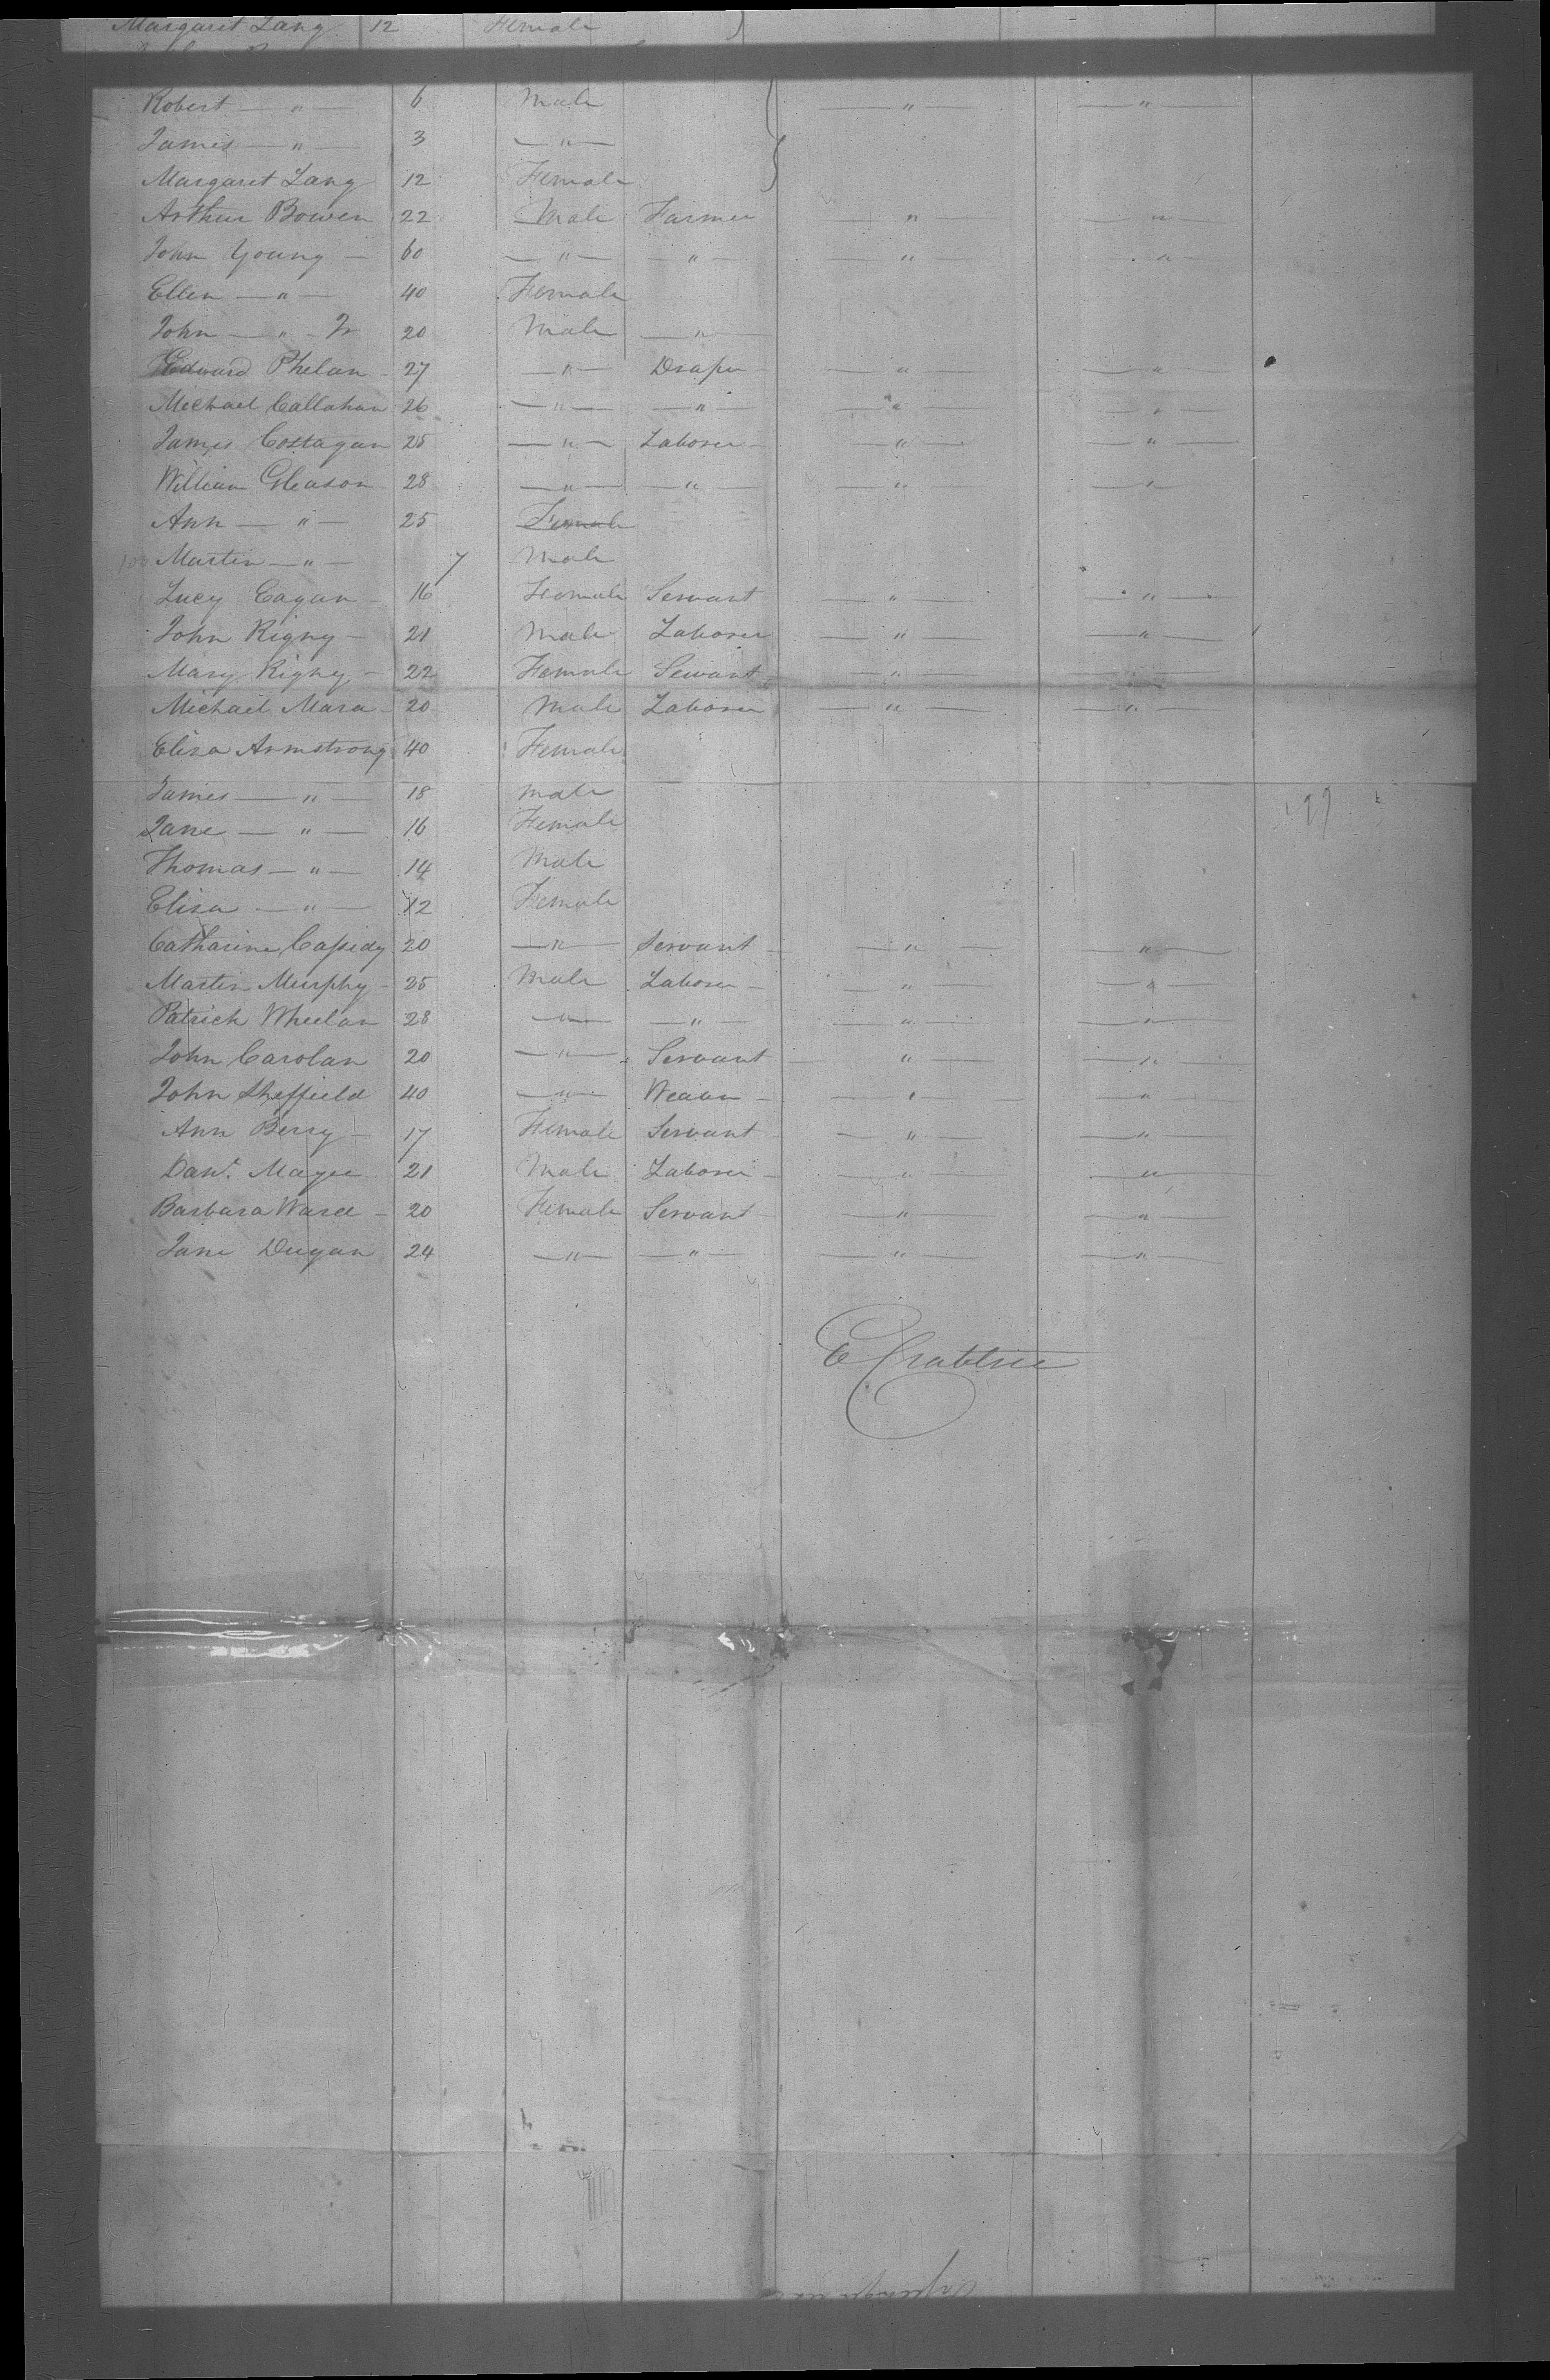 Margaret Lang 12 Female
Robert — " — 6 Male — " — — " —
James — " — 3 — " —
Margaret Lang 12 Female
Arthur Bowen 22 Male Farmer — " — — " —
John Young — 60 — " — — " — — " — — " —
Ellen — " — 40 Female
John — " — Jr 20 Male — " —
Edward Phelan - 27 — " — Draper — " — — " —
Michael Callahan 26 — " — — " — — " — — " —
James Costagan 25 — " — Laborer — " — — " —
William Gleason 28 — " — — " — — " — — " —
Ann — " — 25 Female
100 Martin — " — 7 Male
Lucy Eagan - 16 Female Servant — " — — " —
John Rigny - 21 Male Laborer — " — — " —
Mary Rigny - 22 Female Servant — " — — " —
Michael Mara - 20 Male Laborer — " — — " —
Eliza Armstrong 40 Female
James — " — 18 Male
Jane — " — 16 Female
Thomas — " — 14 Male
Eliza — " — 12 Female
Catharine Cassidy 20 — " — Servant — " — — " —
Martin Murphy - 25 Male Laborer — " — — " —
Patrick Wheelan 28 — " — — " — — " — — " —
John Carolan 20 — " — Servant — " — — " —
John Sheffield 40 — " — Weaver — " — — " —
Ann Berry — 17 Female Servant — " — — " —
Danl. Magee 21 Male Laborer — " — — " —
Barbara Ward - 20 Female Servant — " — — " —
Jane Dugan 24 — " — — " — — " — — " —
E Crabtree